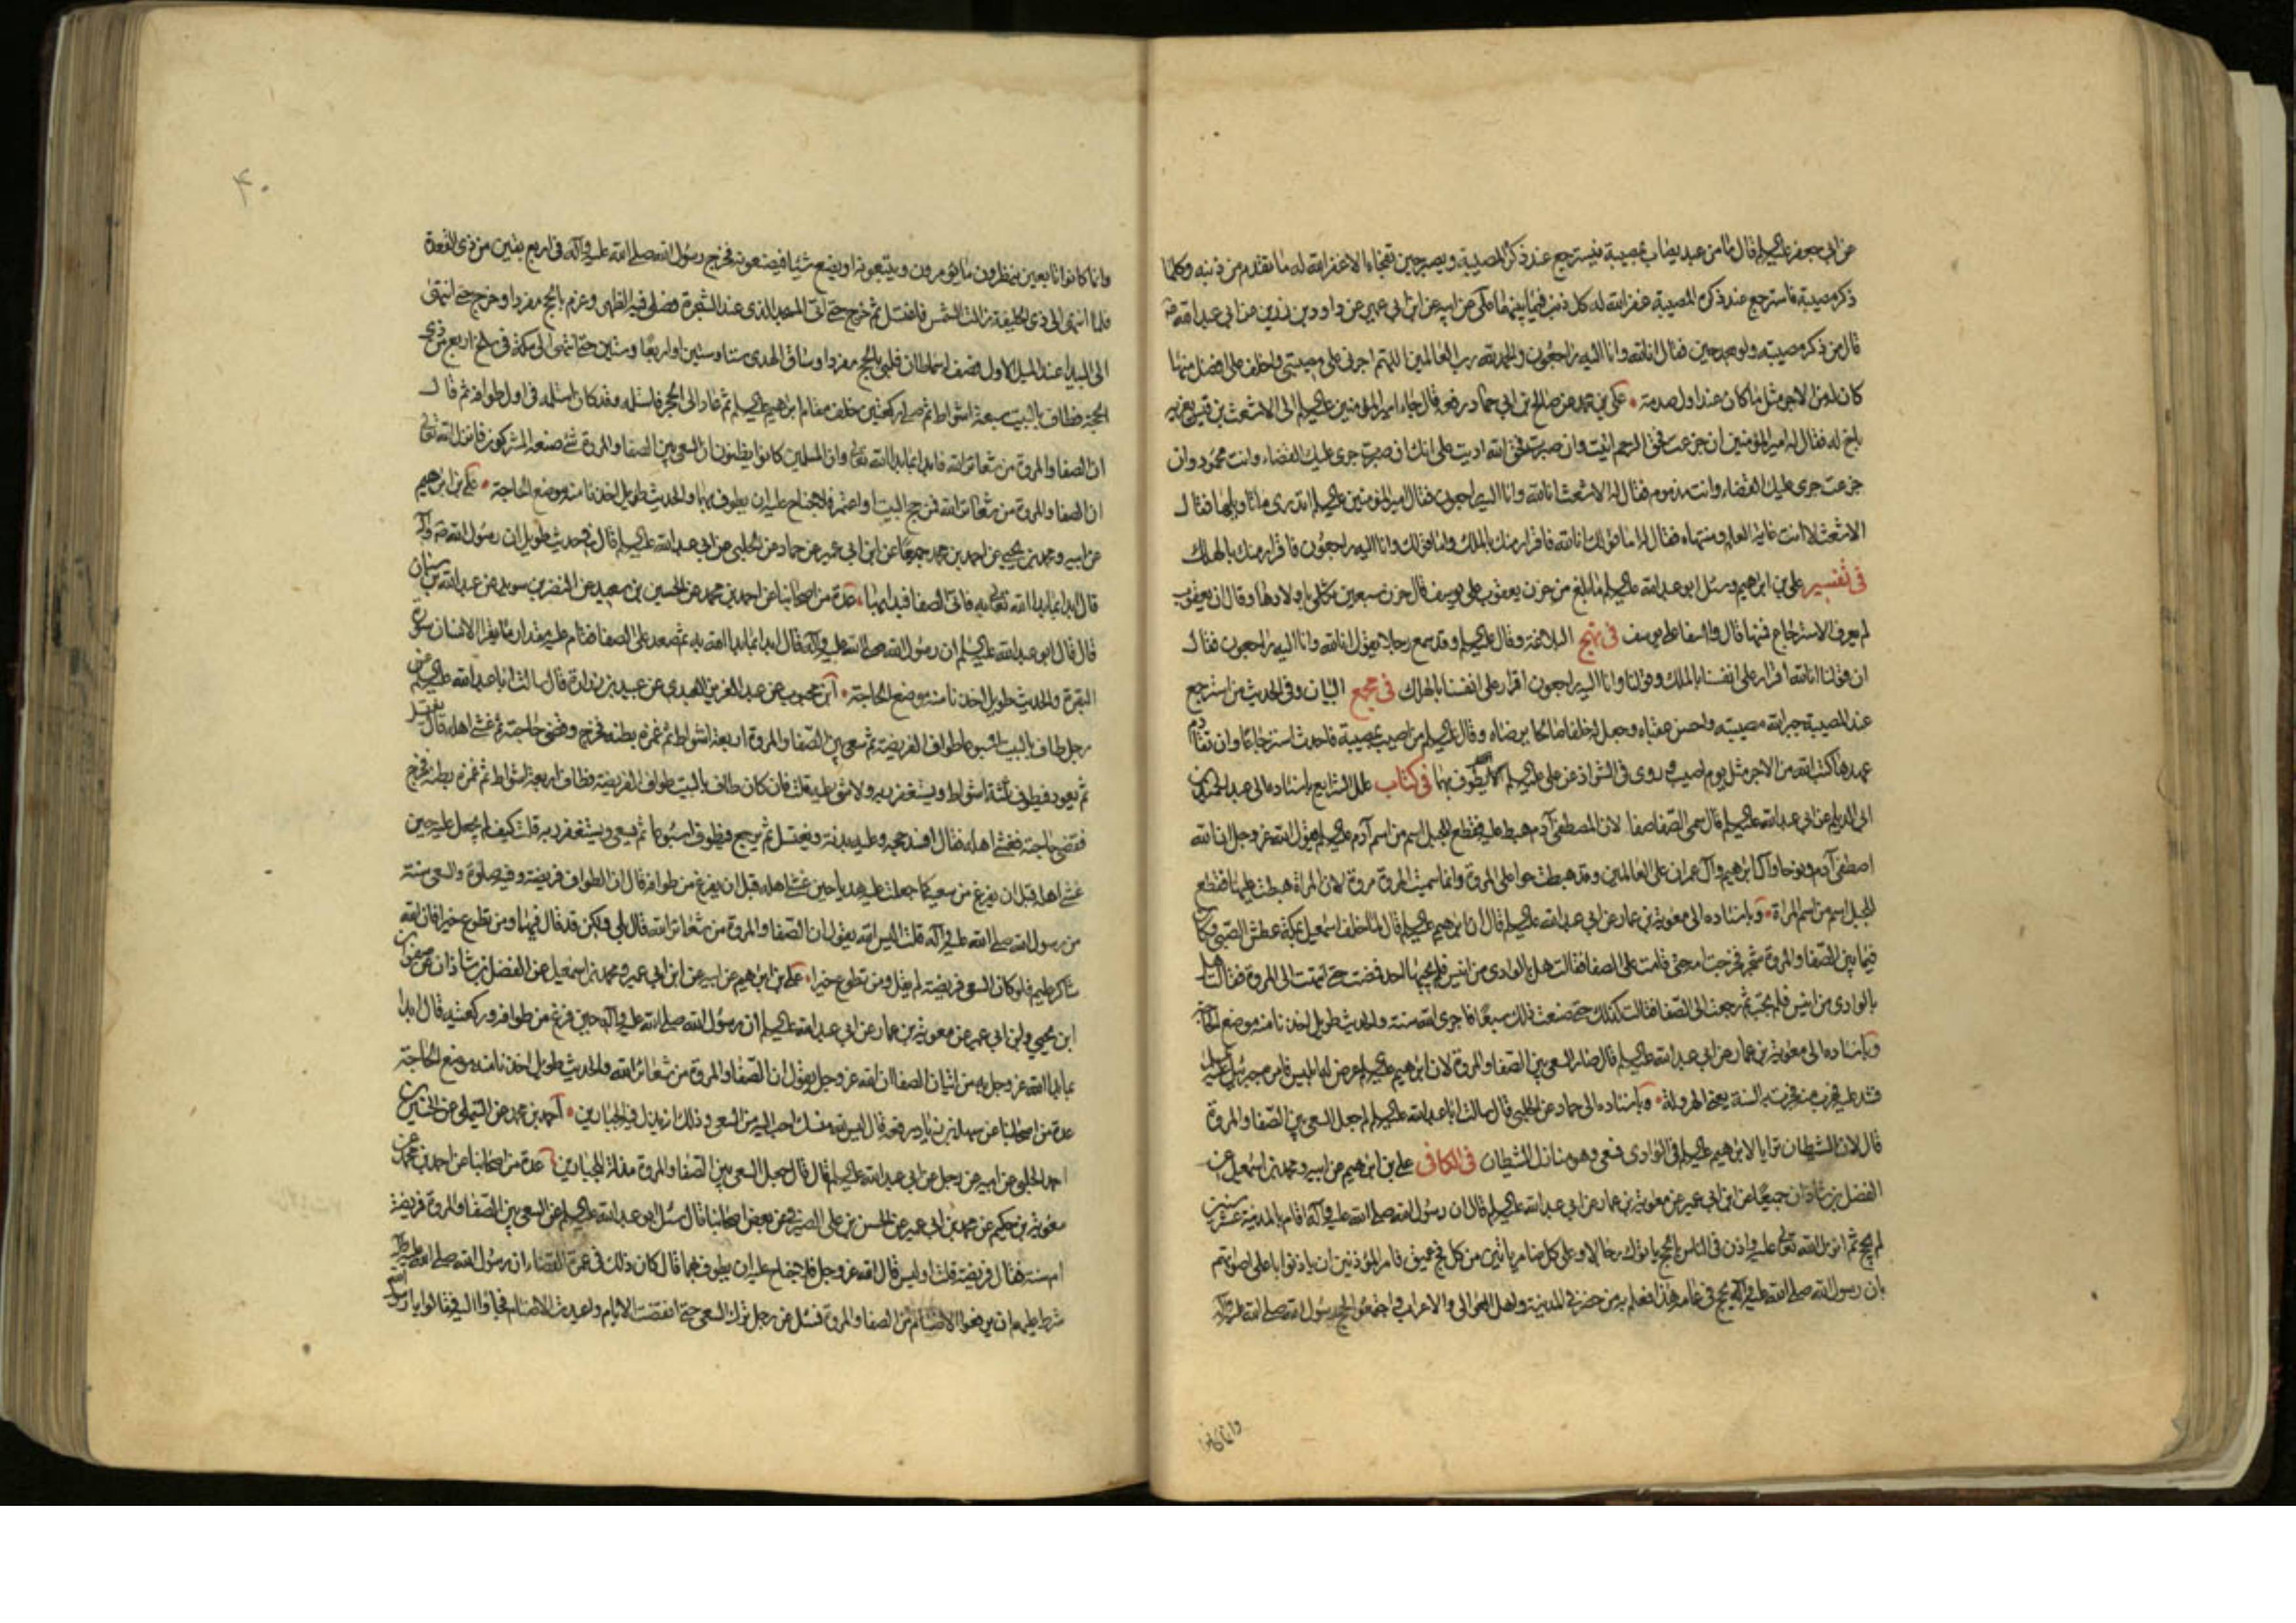 عن ابي جعفر عليه السلم قال ما من عبد يصاب بمصيبة فيسترجع عند ذكره المصيبة ويصبر حين تفجاه الا غفر الله له ما تقدم من ذنبه وكلما
ذكر مصيبة فاسترجع عند ذكره المصيبة غفر الله له كل ذنب فيما بينهما علي عن ابيه عن ابن ابي عمير عن داود بن زربي عن ابي عبد الله
قال من ذكر مصيبته ولو بعد حين فقال انا لله وانا اليه راجعون والحمد لله رب العالمين اللهم اجرني على مصيبتي واخلف على افضل منها
كان له من الاجر مثل ما كان عند اول صدمة علي بن محمد عن صالح بن ابي حماد رفعه قال جاء امير المؤمنين عليه السلم الى الاشعث بن قيس يعزيه
باخ له فقال له امير المؤمنين ان جزعت فحق الرحم اتيت وان صبرت فحق الله اديت على انك ان صبرت جرى عليك القضاء وانت محمود وان
جزعت جرى عليك القضاء وانت مذموم فقال له الاشعث انا لله وانا اليه راجعون فقال امير المؤمنين عليه السلم اتدري ما تاويلها فقال
الاشعث لا انت غاية العلم ومنتهاه فقال له اما قولك انا لله فاقرار منك بالملك واما قولك وانا اليه راجعون فاقرار منك بالهلاك
في تفسير علي بن ابرهيم وسئل ابو عبد الله عليه السلم ما بلغ من حزن يعقوب على يوسف قال حزن سبعين ثكلى باولادها وقال ان يعقوب
لم يعرف الاسترجاع فمنها قال وا اسفا على يوسف في نهج البلاغة وقال عليه السلم وقد سمع رجلا يقول انا لله وانا اليه راجعون فقال
ان قولنا انا لله اقرار على انفسنا بالملك وقولنا وانا اليه راجعون اقرار على انفسنا بالهلاك في مجمع البيان وفي الحديث من استرجع
عند المصيبة جبر الله مصيبته واحسن عقباه وجعل له خلفا صالحا يرضاه وقال عليه السلم من اصيب بمصيبة فاحدث استرجاعا وان تقادم
عهدها كتب الله من الاجر مثل يوم اصيب وروى في الشواذ عن علي عليه السلم الا يطوف بهما في كتاب علل الشرايع باسناده الى عبد الحميد بن
ابي الديلم عن ابي عبد الله عليه السلم قال سمى الصفا صفا لان المصطفى آدم هبط عليه فقطع للجبل اسم من اسم آدم عليه السلم يقول الله عز وجل ان الله
اصطفى آدم ونوحا وآل ابرهيم وآل عمران على العالمين وقد هبطت حوا على المروة وانما سميت المروة مروة لان المراة هبطت عليها فقطع
للجبل اسم من اسم المراة وباسناده الى معوية بن عمار عن ابي عبد الله عليه السلم قال ان ابرهيم عليه السلم قال لما خلف اسمعيل بمكة عطش الصبي وكان
فيما بين الصفا والمروة شجر فخرجت امه حتى قامت على الصفا فقالت هل بالوادي من انيس فلم يجبها احد فمضت حتى انتهت الى المروة فقالت هل
بالوادي من انيس فلم تجب ثم رجعت الى الصفا فقالت كذلك حتى صنعت ذلك سبعا فاجرى الله سنة والحديث طويل اخذنا منه موضع الحاجة
وباسناده الى معوية بن عمار عن ابي عبد الله عليه السلم قال صار السعي بين الصفا والمروة لان ابرهيم عليه السلم عرض له ابليس فامره جبرئيل عليه السلم
فشد عليه فهرب منه فجرت به السنة يعني الهرولة وباسناده الى حماد عن الحلبي قال سالت ابا عبد الله عليه السلم لم جعل السعي بين الصفا والمروة
قال لان الشيطان ترايا لابرهيم عليه السلم في الوادي فسعى وهو منازل الشيطان في الكافي علي بن ابرهيم عن ابيه ومحمد بن اسمعيل عن
الفضل بن شاذان جميعا عن ابن ابي عمير عن معوية بن عمار عن ابي عبد الله عليه السلم قال ان رسول الله صلى الله عليه وآله اقام بالمدينة عشر سنين
لم يحج ثم انزل الله تعالى عليه واذن في الناس بالحج ياتوك رجالا وعلى كل ضامر ياتين من كل فج عميق فامر المؤذنين ان يؤذنوا باعلى اصواتهم
بان رسول الله صلى الله عليه وآله يحج في عامه هذا فعلم به من حضر في المدينة واهل العوالي والاعراب واجتمعوا لحج رسول الله صلى الله عليه وآله
وانما كانوا
۴۰
وانما كانوا تابعين ينظرون ما يؤمرون ويتبعونه او يصنع شيئا فيصنعونه فخرج رسول الله صلى الله عليه وآله في اربع بقين من ذي القعدة
فلما انتهى الى ذي الحليفة زالت الشمس فاغتسل ثم خرج حتى اتى المسجد الذي عند الشجرة فصلى فيه الظهر وعزم بالحج مفردا وخرج حتى انتهى
الى البيداء عند الميل الاول فصف له سماطان فلبى بالحج مفردا وساق الهدى ستا وستين او اربعا وستين حتى انتهى الى مكة في سلخ اربع من ذي
الحجة فطاف بالبيت سبعة اشواط ثم صلى ركعتين خلف مقام ابرهيم عليه السلم ثم عاد الى الحجر فاستلمه وقد كان استلمه في اول طوافه ثم قال
ان الصفا والمروة من شعائر الله فابدا بما بدا الله تعالى وان المسلمين كانوا يظنون ان السعي بين الصفا والمروة شئ صنعه المشركون فانزل الله تعالى
ان الصفا والمروة من شعائر الله فمن حج البيت او اعتمر فلا جناح عليه ان يطوف بهما والحديث طويل اخذنا منه موضع الحاجة علي بن ابرهيم
عن ابيه ومحمد بن يحيى عن احمد بن محمد جميعا عن ابن ابي عمير عن حماد عن الحلبي عن ابي عبد الله عليه السلم قال في حديث طويل ان رسول الله ص وآله
قال ابدا بما بدا الله تعالى به فاتى الصفا فبدا بها عدة من اصحابنا عن احمد بن محمد عن الحسين بن سعيد عن النضر بن سويد عن عبد الله بن سنان
قال قال ابو عبد الله عليه السلم ان رسول الله صلى الله عليه وآله قال ابدا بما بدا الله به ثم صعد على الصفا فقام عليه مقدار ما يقرا الانسان سورة
البقرة والحديث طويل اخذنا منه موضع الحاجة ابن محبوب عن عبد العزيز العبدي عن عبيد بن زرارة قال سالت ابا عبد الله عليه السلم عن
رجل طاف بالبيت اسبوعا طواف الفريضة ثم سعى بين الصفا والمروة اربعة اشواط ثم غمزه بطنه فخرج وقضى حاجته ثم غشى اهله قال يغتسل
ثم يعود فيطوف ثلثة اشواط ويستغفر ربه ولا شئ عليه قلت فان كان طاف بالبيت طواف الفريضة فطاف اربعة اشواط ثم غمزه بطنه فخرج
فقضى حاجته فغشى اهله فقال افسد حجه وعليه بدنة ويغتسل ثم يرجع فيطوف اسبوعا ثم يسعى ويستغفر ربه قلت كيف لم يجعل عليه حين
غشى اهله قبل ان يفرغ من سعيه كما جعلت عليه هديا حين غشى اهله قبل ان يفرغ من طوافه قال ان الطواف فريضة وفيه صلوة والسعي سنة
من رسول الله صلى الله عليه وآله قلت اليس الله يقول ان الصفا والمروة من شعائر الله قال بلى ولكن قد قال فيها ومن تطوع خيرا فان الله
شاكر عليم فلو كان السعي فريضة لم يقل ومن تطوع خيرا علي بن ابرهيم عن ابيه عن ابن ابي عمير ومحمد بن اسمعيل عن الفضل بن شاذان عن صفوان
ابن يحيى وابن ابي عمير عن معوية بن عمار عن ابي عبد الله عليه السلم ان رسول الله صلى الله عليه وآله حين فرغ من طوافه وركعتيه قال ابدا
بما بدا الله عز وجل به من اتيان الصفا ان الله عز وجل يقول ان الصفا والمروة من شعائر الله والحديث طويل اخذنا منه موضع الحاجة
عدة من اصحابنا عن سهل بن زياد رفعه قال ليس لله منسك احب اليه من السعي وذلك انه يذل فيه الجبارين احمد بن محمد عن التيملي عن الحسين بن
احمد الحلبي عن ابيه عن رجل عن ابي عبد الله عليه السلم قال قال جعل السعي بين الصفا والمروة مذلة للجبارين عدة من اصحابنا عن احمد بن محمد عن
معوية بن حكيم عن محمد بن ابي عمير عن الحسن بن علي الصيرفي عن بعض اصحابنا قال سئل ابو عبد الله عليه السلم عن السعي بين الصفا والمروة فريضة
ام سنة فقال فريضة قلت اوليس قال الله عز وجل فلا جناح عليه ان يطوف بهما قال كان ذلك في عمرة القضاء ان رسول الله صلى الله عليه وآله
شرط عليهم ان يرفعوا الاصنام من الصفا والمروة فسئل عن رجل ترك السعي حتى انقضت الايام واعيدت الاصنام فجاؤا اليه فقالوا يا رسول